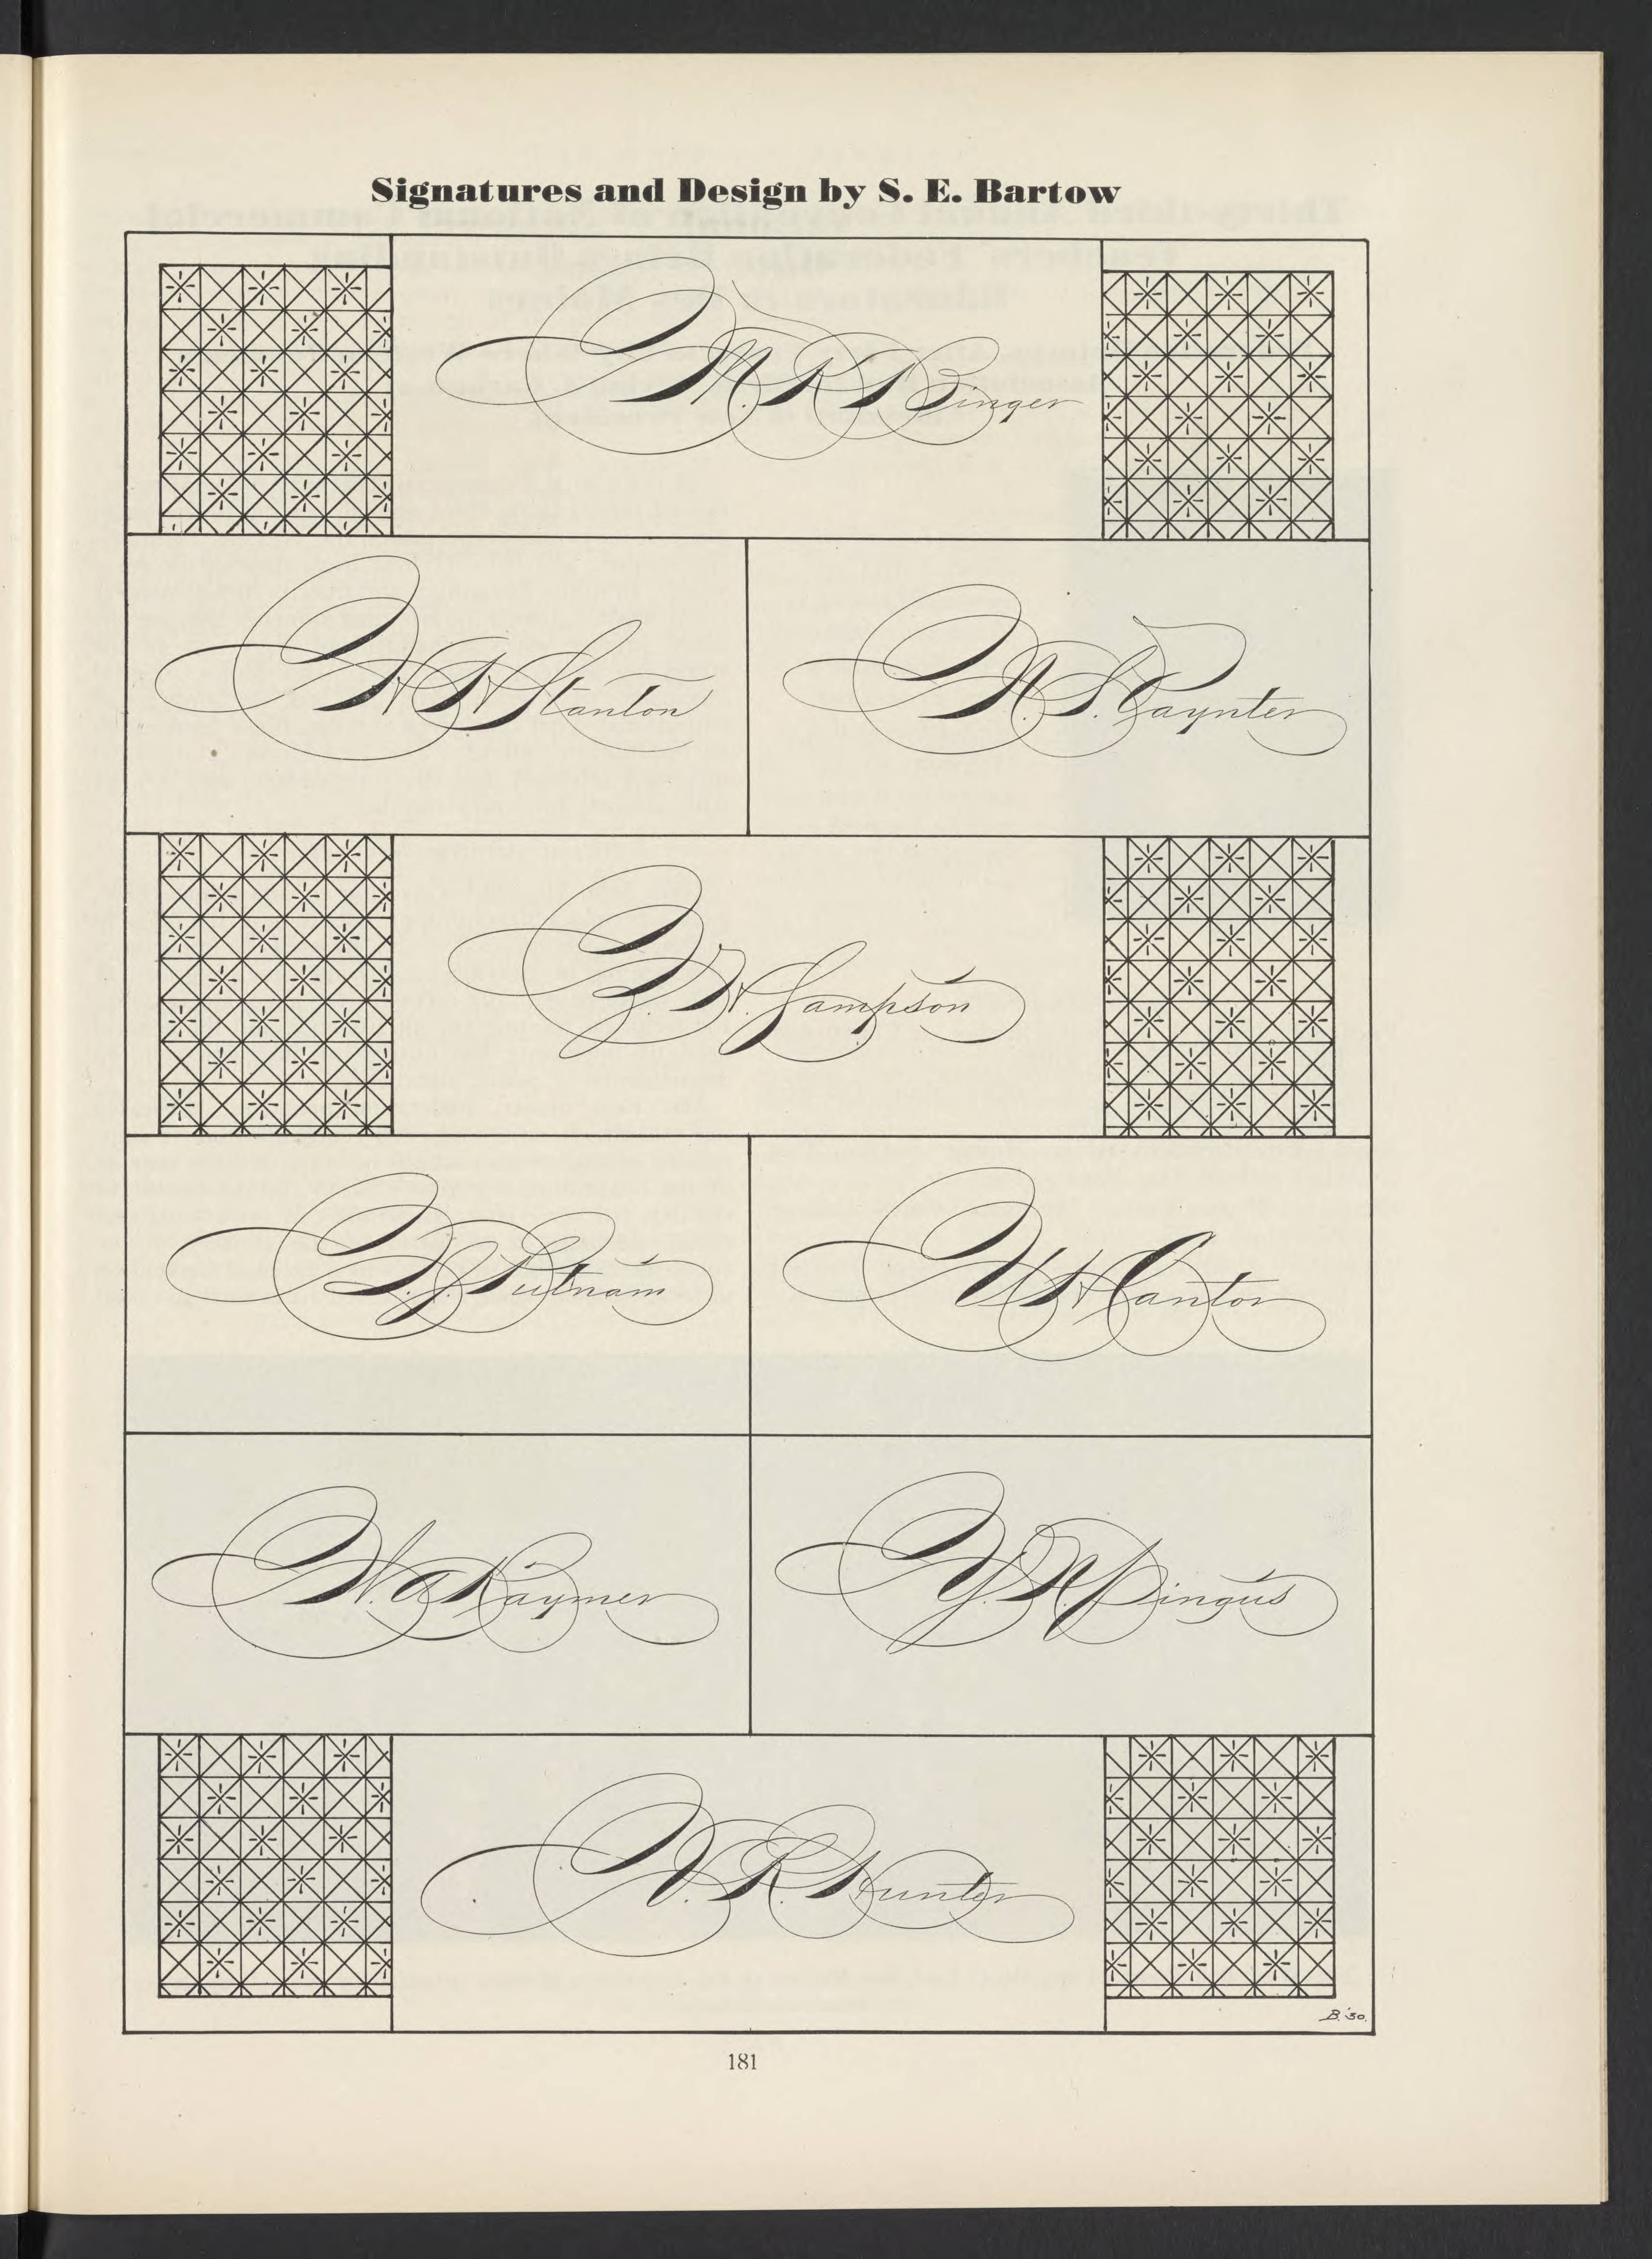 Signatures and Design by S. E. Bartow
M. R. Binger
Stanton
N. S. Paynter
Z. W. Sampson
J. Putnam
Canton
W. A. Raymer
Y. N. Pingus
V. R. Hunter
B. '30.
181